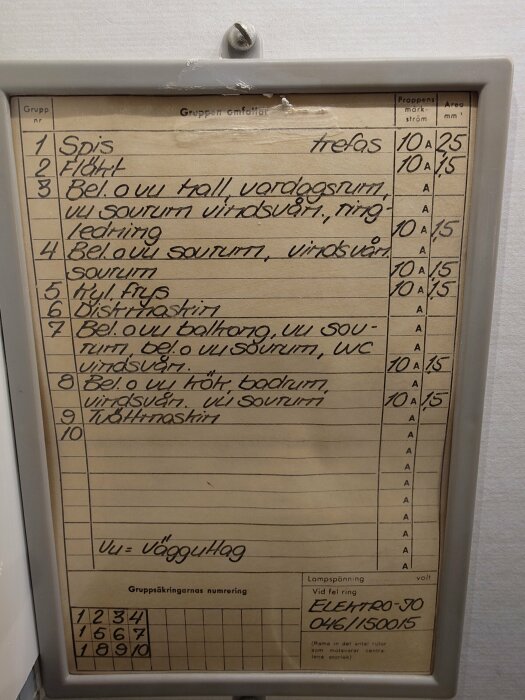 Grupp nr Gruppen omfattar Proppens märk- ström Area mm²
1 Spis trefas 10 A 2,5
2 Fläkt 10 A 1,5
3 Bel. o vu hall, vardagsrum, A
vu sovrum vindsvån., ring- A
ledning 10 A 1,5
4 Bel. o vu sovrum, vindsvån A
sovrum 10 A 1,5
5 Kyl. frys 10 A 1,5
6 Diskmaskin A
7 Bel. o vu balkong, vu sov- A
rum, bel. o vu sovrum, WC A
vindsvån. 10 A 1,5
8 Bel. o vu kök, badrum, A
vindsvån. vu sovrum 10 A 1,5
9 Tvättmaskin A
10 A
A
A
A
A
A
A
Vu = vägguttag A
A
Gruppsäkringarnas numrering
Lampspänning volt
Vid fel ring
ELEKTRO-JO
046/150015
(Rama in det antal rutor
som motsvarar centra-
lens storlek)
1 2 3 4
1 5 6 7
1 8 9 10